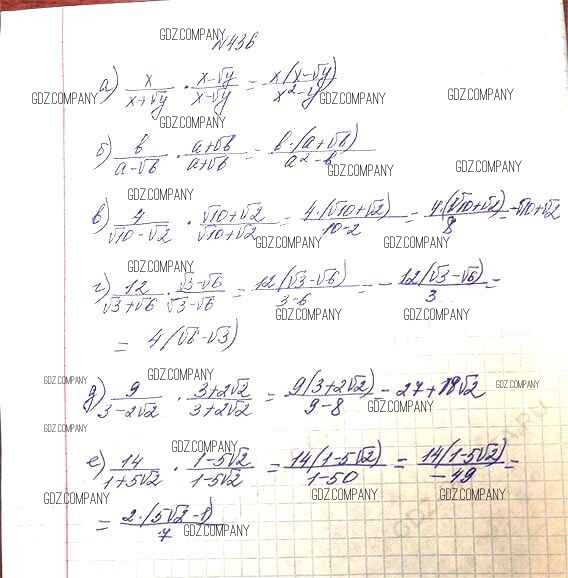 GDZ.COMPANY
№436
а) x/(x+√y) · (x-√y)/(x-√y) = x(x-√y)/(x²-y)
GDZ.COMPANY GDZ.COMPANY GDZ.COMPANY
GDZ.COMPANY
б) b/(a-√b) · (a+√b)/(a+√b) = b·(a+√b)/(a²-b)
GDZ.COMPANY GDZ.COMPANY
GDZ.COMPANY
в) 4/(√10-√2) · (√10+√2)/(√10+√2) = 4·(√10+√2)/(10-2) = 4·(√10+√2)/8 =
GDZ.COMPANY GDZ.COMPANY
GDZ.COMPANY
г) 12/(√3+√6) · (√3-√6)/(√3-√6) = 12(√3-√6)/(3-6) = - 12(√3-√6)/3 =
GDZ.COMPANY GDZ.COMPANY
= 4(√6-√3)
GDZ.COMPANY GDZ.COMPANY GDZ.COMPANY
д) 9/(3-2√2) · (3+2√2)/(3+2√2) = 9(3+2√2)/(9-8) - 27+18√2
GDZ.COMPANY
GDZ.COMPANY
GDZ.COMPANY
е) 14/(1+5√2) · (1-5√2)/(1-5√2) = 14(1-5√2)/(1-50) = 14(1-5√2)/(-49) =
GDZ.COMPANY GDZ.COMPANY GDZ.COMPANY
= 2·(5√2-1)/7
GDZ.COMPANY